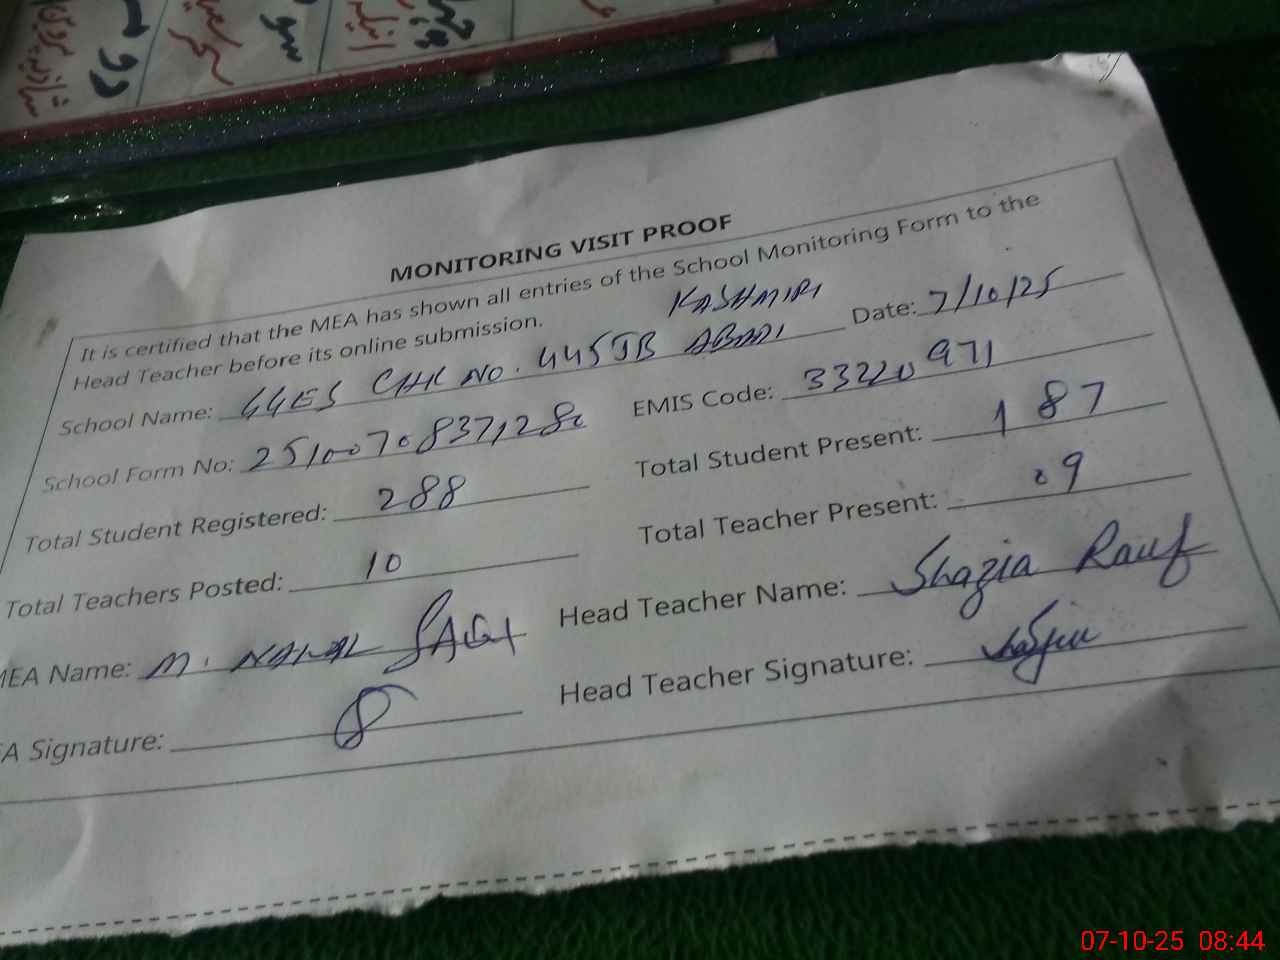 MONITORING VISIT PROOF
It is certified that the MEA has shown all entries of the School Monitoring Form to the
Head Teacher before its online submission.
KASHMIRI
School Name: GGES CHK NO. 445JB ABADI Date: 7/10/25
School Form No: EMIS Code: 33220971
Total Student Registered: 288 Total Student Present: 187
Total Teachers Posted: 10 Total Teacher Present: 09
MEA Name: M. Head Teacher Name: Shazia Rauf
A Signature: Head Teacher Signature:
07-10-25 08:44